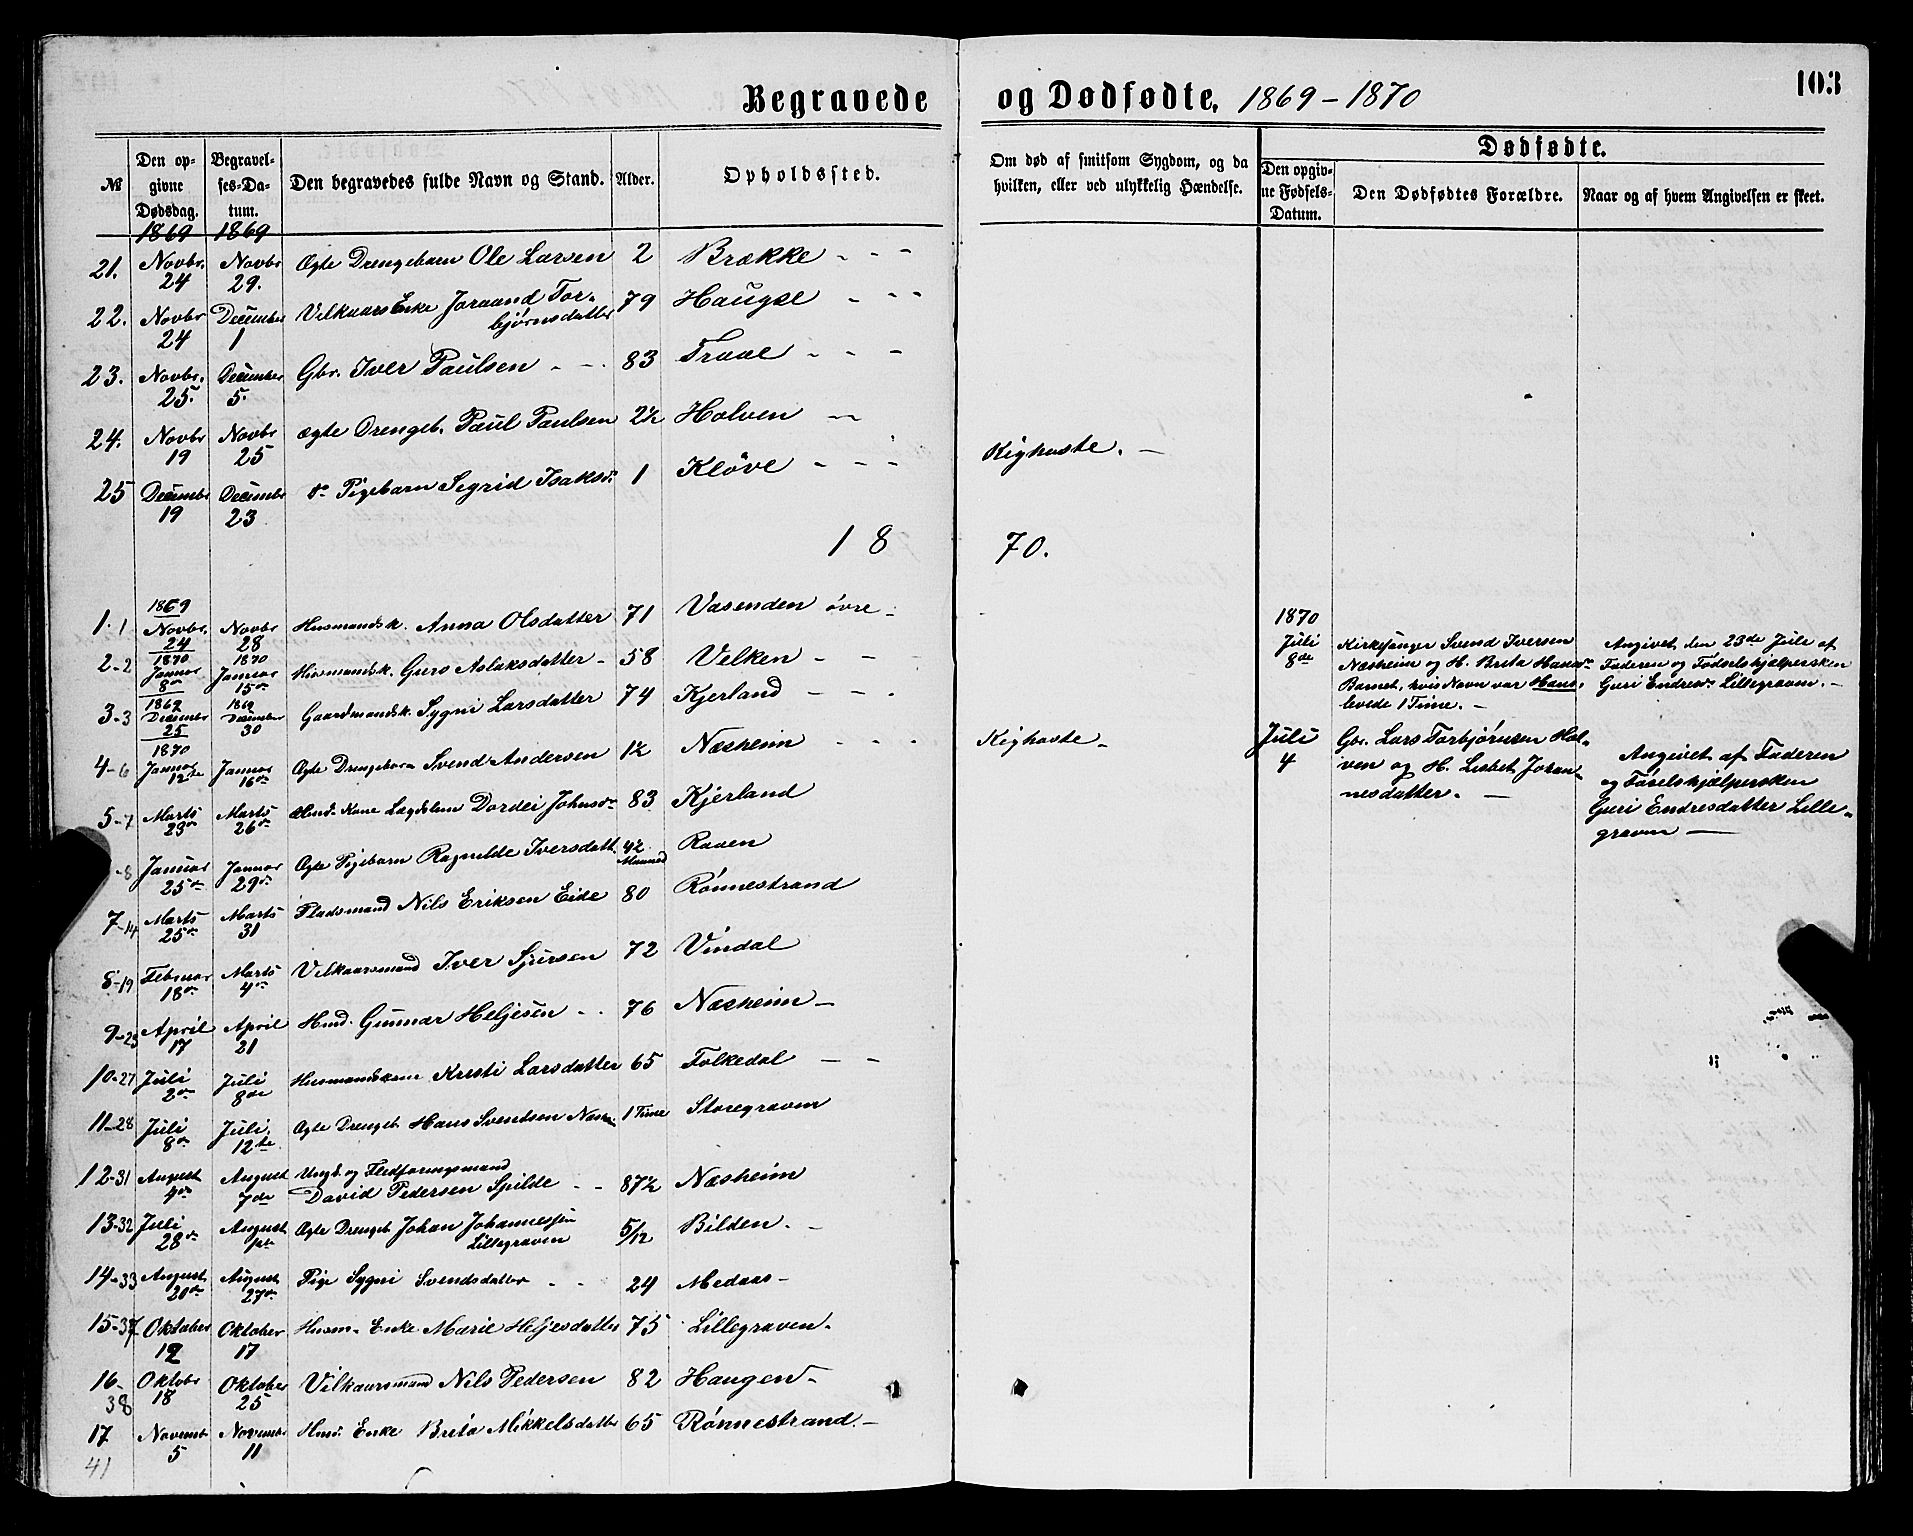 Begravede og Dødfødte, 1869-1870
103
№
Den opgivne Dødsdag.
Begravelses-Datum.
Den begravedes fulde Navn og Stand.
Alder.
Opholdssted.
Om død af smitsom Sygdom, og da hvilken, eller ved ulykkelig Hændelse.
Dødfødte.
Den opgivne Fødsels-Datum.
Den Dødfødtes Forældre.
Naar og af hvem Angivelsen er skeet.
1869 1869
21. Novbr. 24 Novbr 29. Ægte Drengebarn Ole Larsen 2 Brække - - -
22. Novbr 24 December 1 Vilkaars Enke Joraand Torbjørnsdatter 79 Haugse - - -
23. Novbr. 25. December 5. Gbr. Iver Paulsen - - . 83 Traae - - -
24. Novbr 19 Novbr 25 ægte Drengeb. Paul Paulsen 2½ Holven - Kighoste. -
25 Decembr 19 Decembr 23 do Pigebarn Segrid Isaksd. 1 Kløve - - -
1870.
1.1 1869 Novbr. 24 Novbr 28 Husmandsk. Anna Olsdatter 71 Vasenden øvre -
2-2 1870 Januar 8de 1870 Januar 15de Husmandsk. Guro Aslaksdatter - 58 Velken - - -
3-3 1869 December 25 1869 December 30 Gaardmandsk. Sygni Larsdatter 74 Kjerland - - -
4-6 1870 Januar 12te Januar 16de Ægte Drengebarn Svend Andersen 1½ Næsheim - - - Kighoste -
5-7 Marts 23de Marts 26de Kone Lægdslem Dordei Johnsdr 83 Kjerland
-8 Januar 25de Januar 29de Ægte Pigebarn Ragnilde Iversdatt. 4½ Maaned Raaen
7-14 Marts 25de Marts 31 Pladsmand Nils Eriksen Eide 80 Rønnestrand
8-19 Februar 18de Marts 4de Vilkaarsmand Iver Sjursen 72 Vindal
9-23 April 17 April 21 Hmd. Gunnar Heljesen - . 76 Næsheim -
10-27 Juli 2de Juli 8de Husmandskone Kristi Larsdatter 65 Folkedal - -
11-28 Juli 8de Juli 12te Ægte Drengeb. Hans Svendsen Næsh. 1 Time Storegraven
12-31 August 4de August 7de Ungk. og Fledføringsmand
David Pedersen Spilde - - 87½ Næsheim
13-32 Juli 28de August 1ste Ægte Drengeb. Johan Johannessen
Lillegraven 5/12 Bilden. -
14-33 August 20de August 27de Pige Sygni Svendsdatter - - 24 Medaas -
15-37 Oktober 12 Oktober 17 Husm. Enke Marie Heljesdatter 75 Lillegraven.
16-38 Oktobr 18 Oktober 25 Vilkaarsmand Nils Pedersen 82 Haugen -
17 41 Novembr 5 Novembr 11 Hmd. Enke Brita Mikkelsdatter 65 Rønnestrand. -
1870
Juli 8de
Kirkesanger Svend Iversen
Næsheim og H. Brita Hansdr
Barnet, hvis Navn var Hans,
levede 1 Time. -
Angivet den 23de Juli af
Faderen og Fødselshjælpersken
Guri Endresdr Lillegraven. -
Juli 4
Gbr. Lars Torbjørnsen Hol-
ven og H. Lisbet Johan-
nesdatter. -
Angivet af Faderen
og Føselshjælpersken
Guri Endresdatter Lille-
graven -